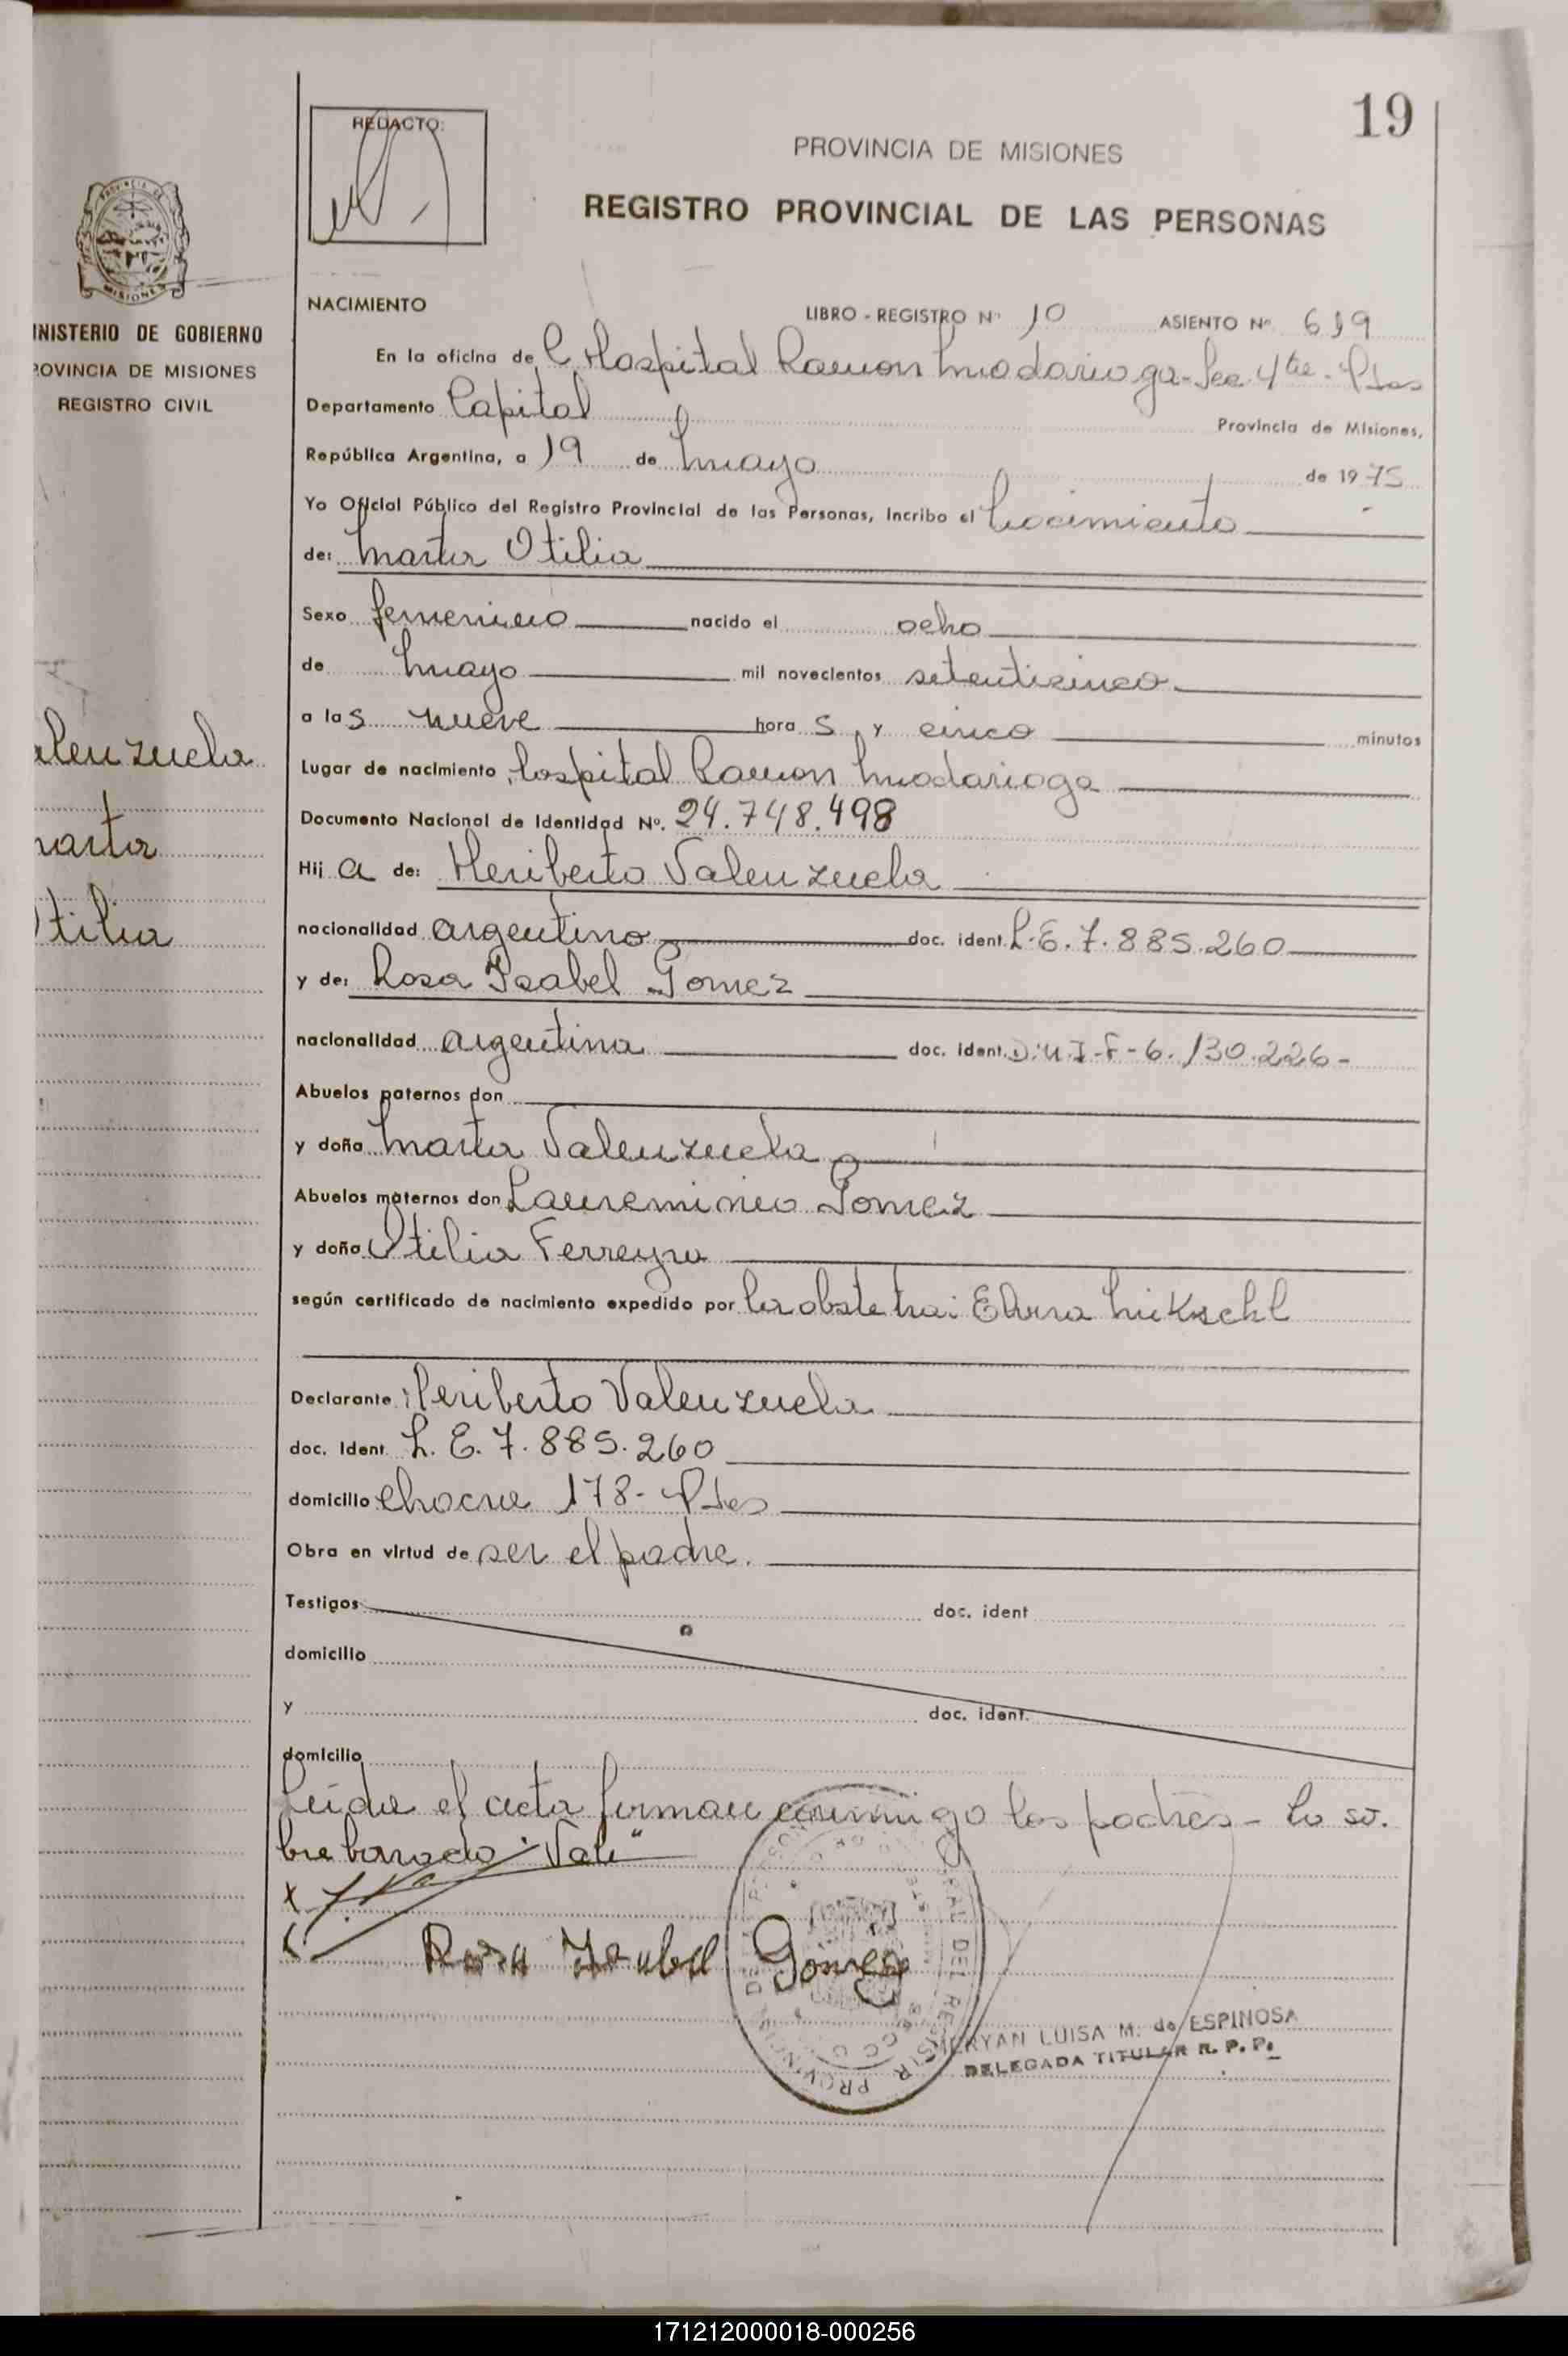 19
REDACTO:
PROVINCIA DE MISIONES
REGISTRO PROVINCIAL DE LAS PERSONAS
INISTERIO DE GOBIERNO
ROVINCIA DE MISIONES
REGISTRO CIVIL
alenzuela
marta
Otilia
NACIMIENTO LIBRO - REGISTRO Nº 10 ASIENTO Nº 619
En la oficina de Hospital Ramon Madariaga - Sec 4ta - Pdas
Departamento Capital Provincia de Misiones,
República Argentina, a 19 de mayo de 1975
Yo Oficial Público del Registro Provincial de las Personas, Incribo el nacimiento
de: Marta Otilia
Sexo femenino nacido el ocho
de mayo mil novecientos setenticinco
a las nueve horas y cinco minutos
Lugar de nacimiento Hospital Ramon Madariaga
Documento Nacional de Identidad Nº. 24.748.498
Hij a de: Heriberto Valenzuela
nacionalidad argentino doc. ident. L.E. 7.885.260
y de: Rosa Isabel Gomez
nacionalidad argentina doc. ident. D.N.I-F-6.130.226-
Abuelos paternos don
y doña Marta Valenzuela
Abuelos maternos don Laureminio Gomez
y doña Otilia Ferreyra
según certificado de nacimiento expedido por la obstetra: Elvira
Declarante Heriberto Valenzuela
doc. Ident. L.E. 7.885.260
domicilio 178 - Pdas
Obra en virtud de ser el padre.
Testigos doc. ident
domicilio
y doc. ident.
domicilio
Leida el acta firman conmigo los padres - Lo so.
bre borrado "Vale"
Rosa Isabel Gomez
MERYAN LUISA M. de ESPINOSA
DELEGADA TITULAR R. P. P.
171212000018-000256